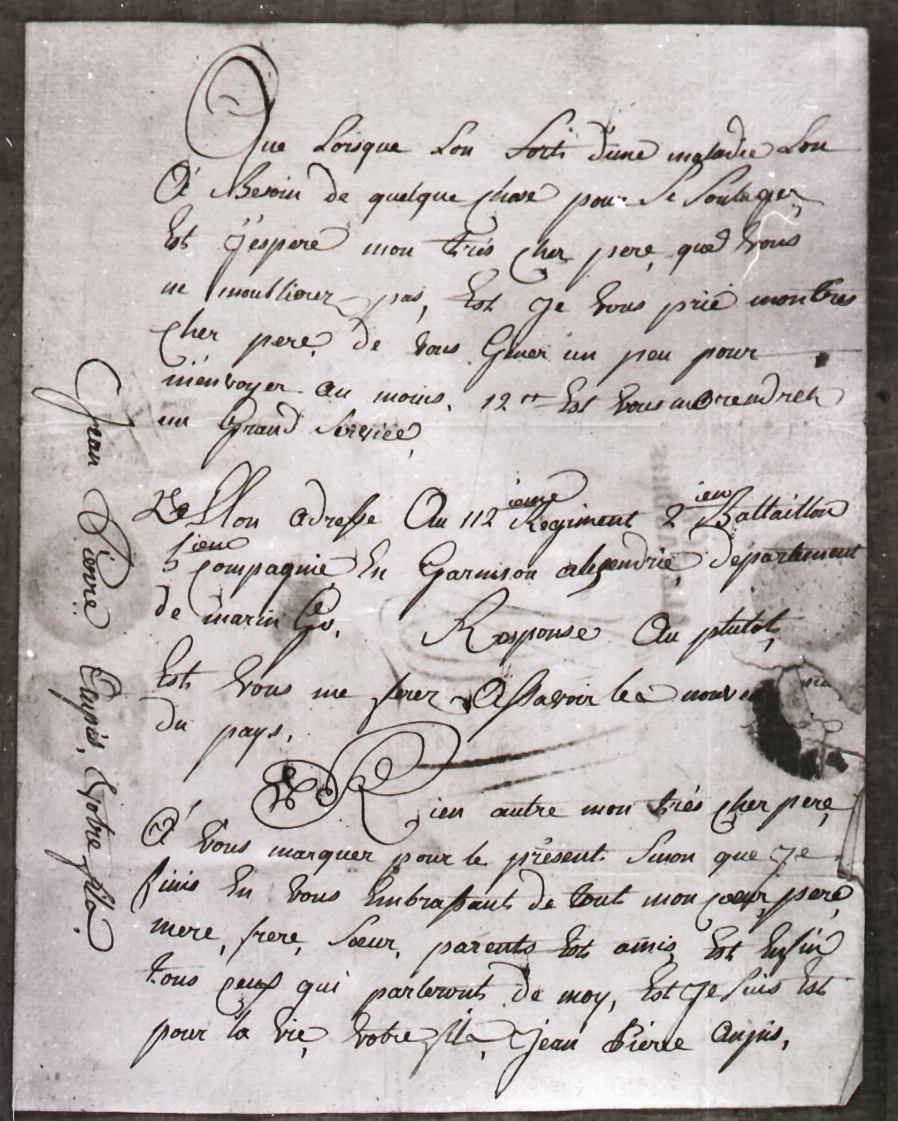 Que Lorsque Lon Sorti d'une maladie Lon
A Besoin de quelque chose pour Se Soulager,
Est J'espere mon tres cher pere, que vous
ne moublierez pas, Est Je vous prie mon tres
cher pere, de vous Gener un peu pour
m'envoyer au moins. 12 tt Est vous me rendrez
un Grand Service,
Mon adresse Au 112 ieme Regiment 2 ieme Battaillon
5 ieme Compagnie En Garnison alexendrie, departement
de marin Go. Response Au plutot,
Est vous me ferez Assavoir les
du pays,
Rien autre mon tres cher pere,
A vous marquer pour le présent Sinon que Je
finis En vous Embrassant de tout mon coeur, pere,
mere, frere, Soeur, parents Est amis, Est Enfin
tous ceux qui parleront de moy, Est Je Suis Est
pour la vie, votre fils, Jean Pierre
Jean Pierre votre fils.